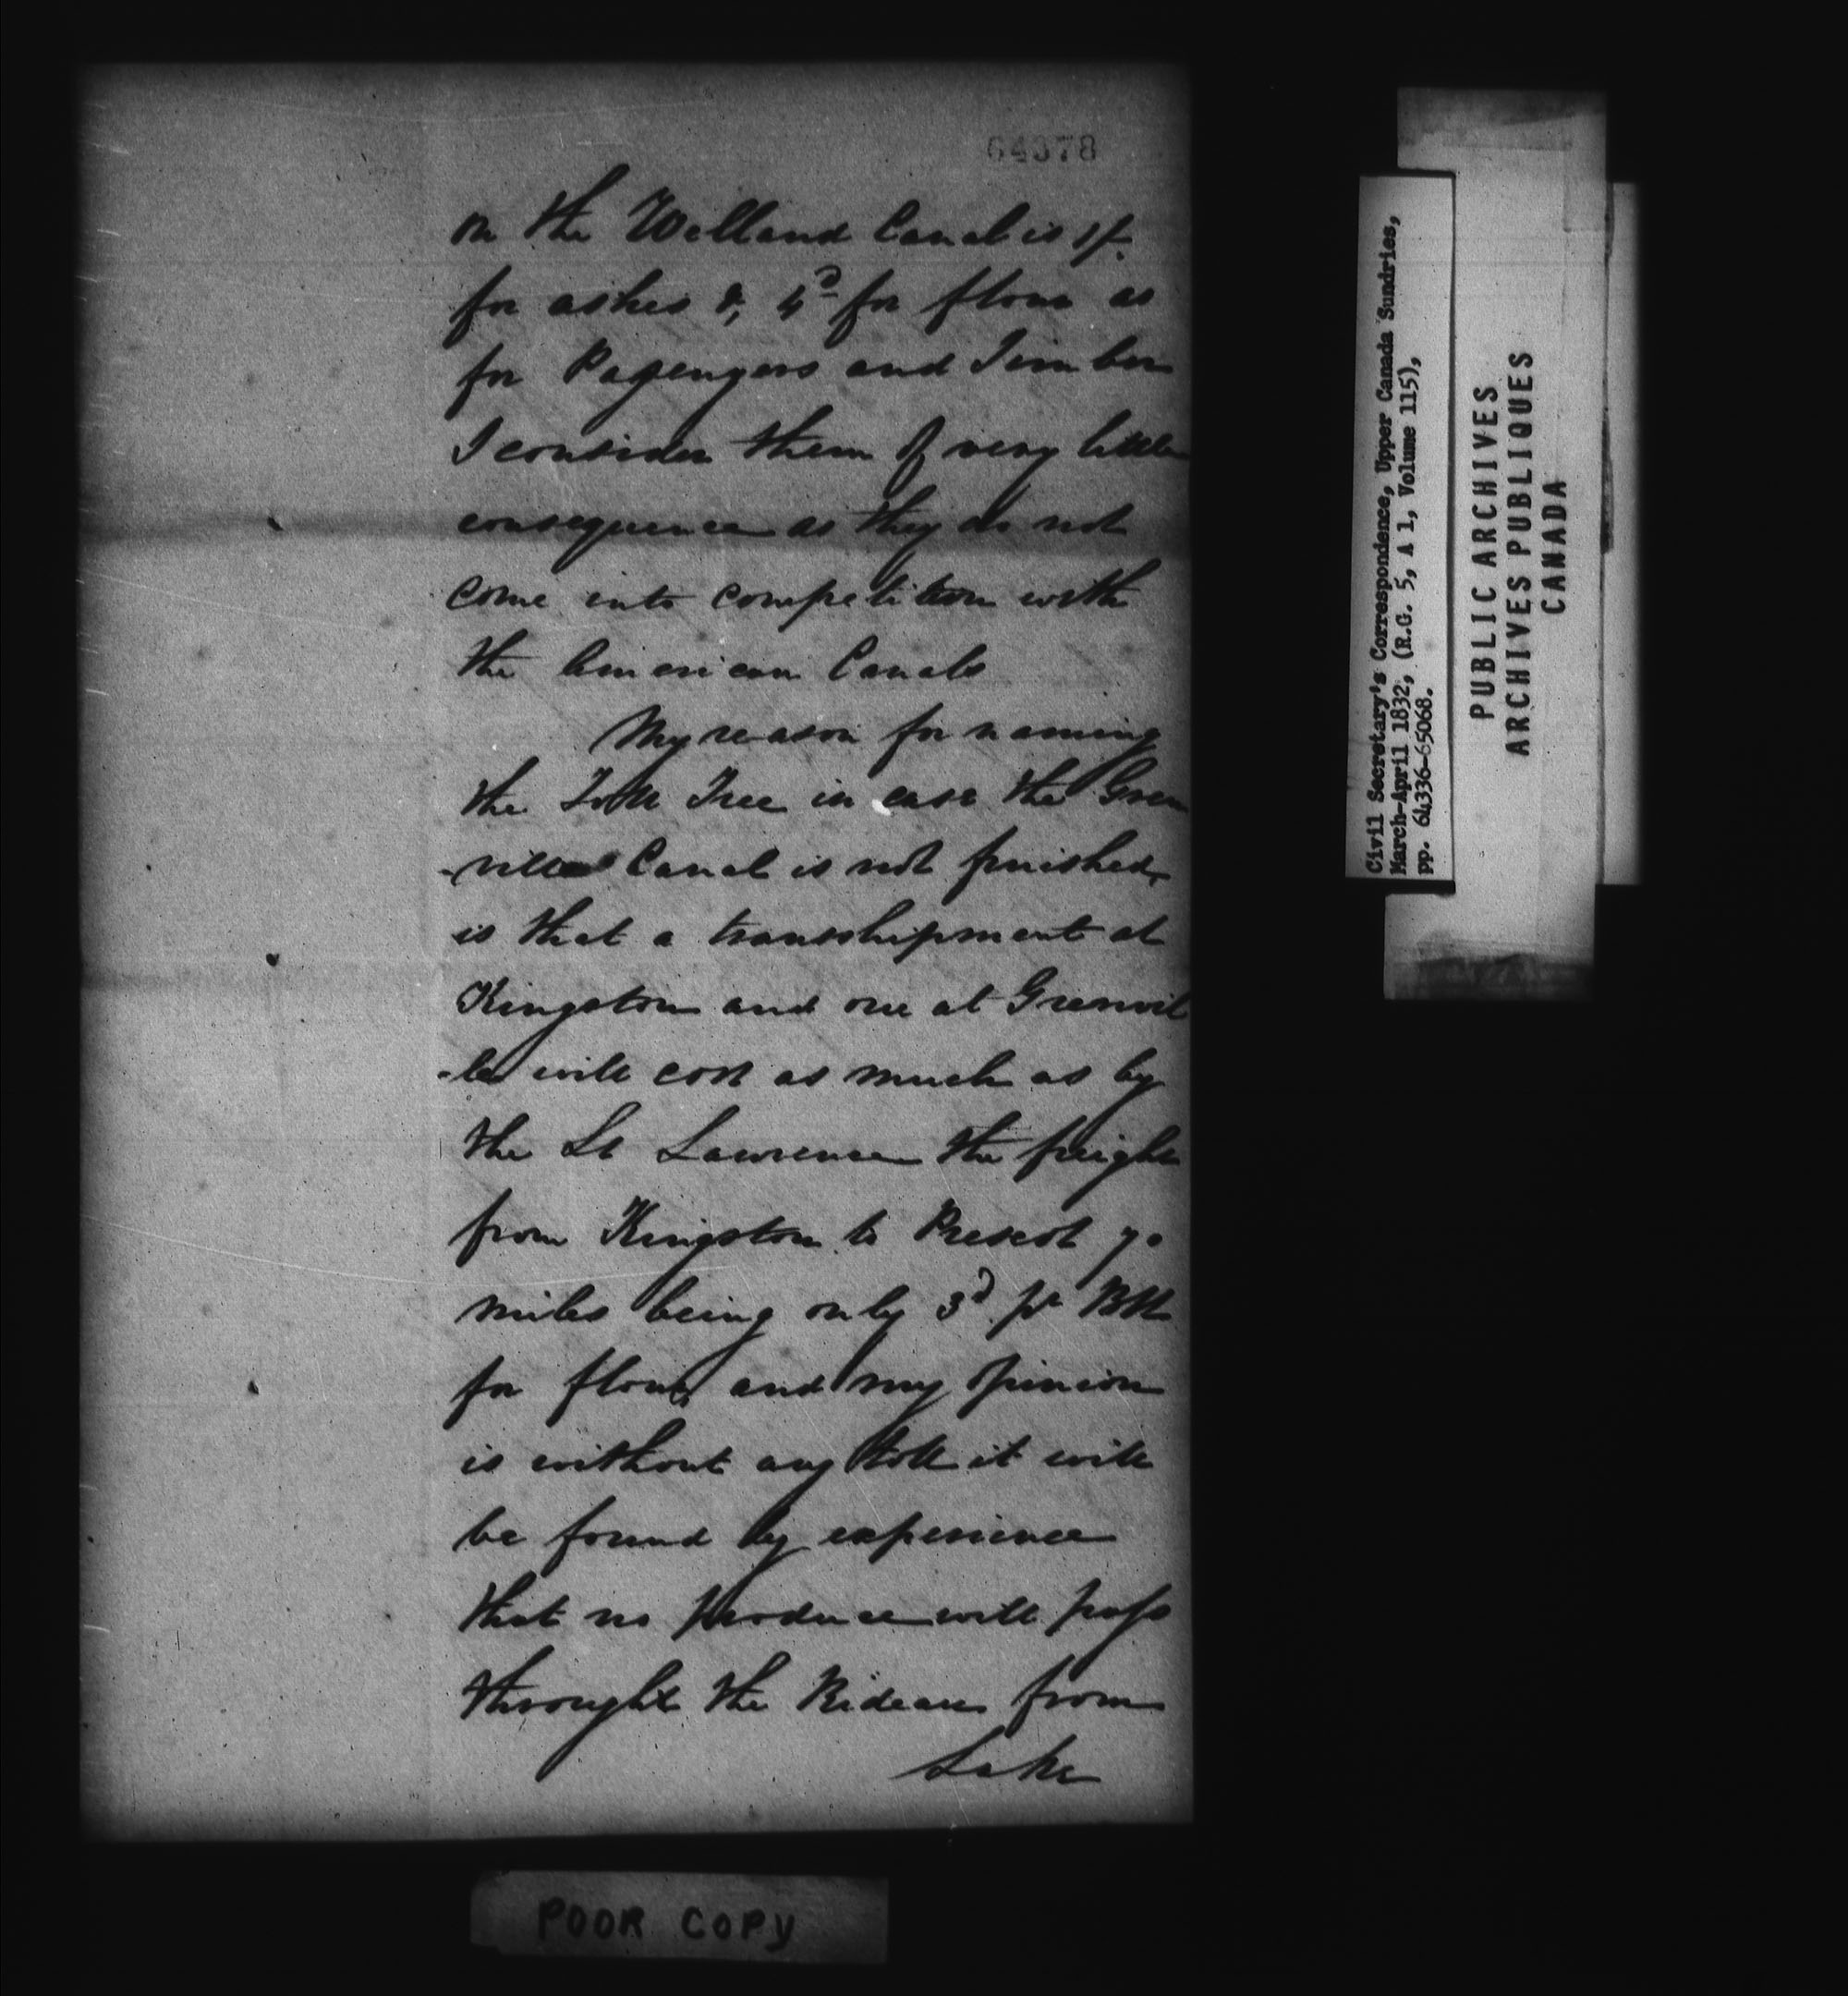 64378
on the Welland Canal is 1/-
for ashes &, 4d for flour as
for Passengers and Timber
I consider them of very little
consequence as they do not
come into competition with
the American Canals
My reason for naming
the Toll Free in case the Gren
-ville Canal is not finished,
is that a transhipment at
Kingston and one at Grenvil
-le will cost as much as by
the St Lawrence the freight
from Kingston to Prescot 70
miles being only 3d pr Bll
for flour, and my opinion
is without any toll it will
be found by experience
that no produce will pass
throught the Rideau from
Lake
POOR COPY
Civil Secretary's Correspondence, Upper Canada Sundries,
March-April 1832, (R.G. 5, A 1, Volume 115),
pp. 64336-65068.
PUBLIC ARCHIVES
ARCHIVES PUBLIQUES
CANADA